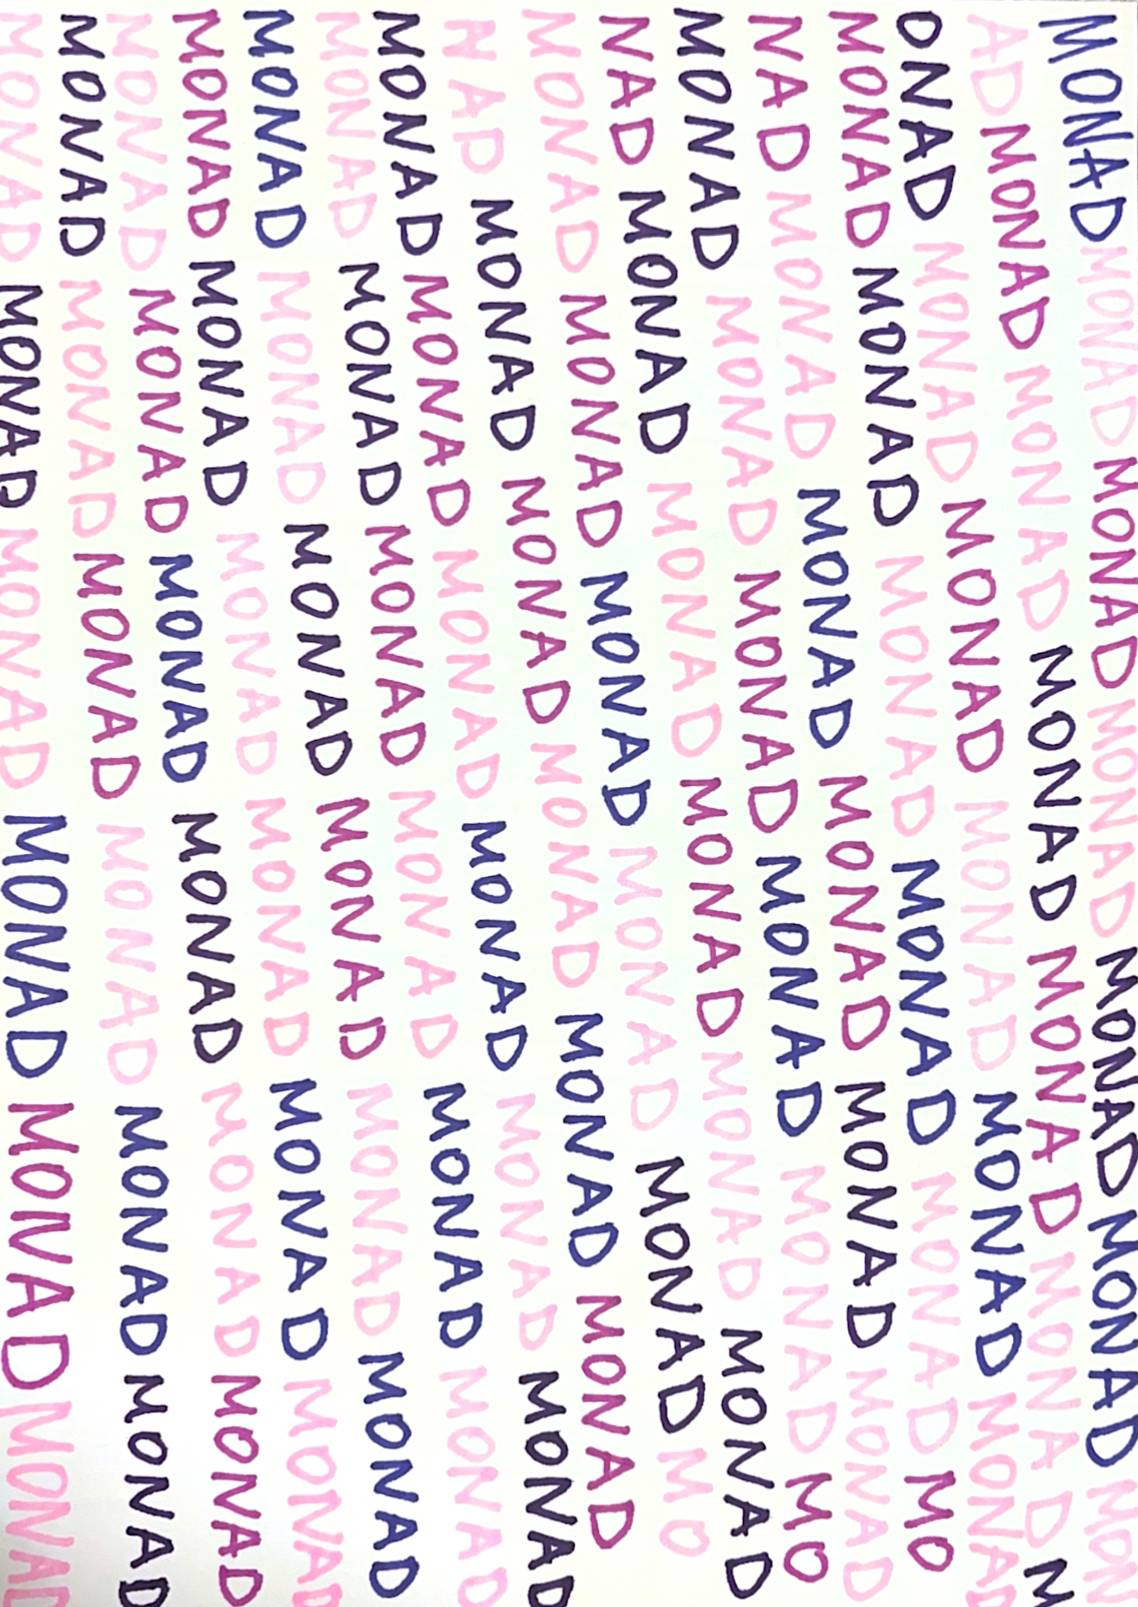 MONAD MONAD MONAD MONAD MONAD MONAD MON
AD MONAD MONAD MONAD MONAD MONAD M
ONAD MONAD MONAD MONAD MONAD MONAD
MONAD MONAD MONAD MONAD MONAD MO
NAD MONAD MONAD MONAD MONAD MONAD
MONAD MONAD MONAD MONAD MONAD MO
NAD MONAD MONAD MONAD MONAD MONAD
MONAD MONAD MONAD MONAD MONAD MO
NAD MONAD MONAD MONAD MONAD MONAD
MONAD MONAD MONAD MONAD MONAD MONAD
MONAD MONAD MONAD MONAD MONAD MONAD
MONAD MONAD MONAD MONAD MONAD MONAD
MONAD MONAD MONAD MONAD MONAD MONAD
MONAD MONAD MONAD MONAD MONAD MONAD
MONAD MONAD MONAD MONAD MONAD MONAD
MONAD MONAD MONAD MONAD MONAD MONAD